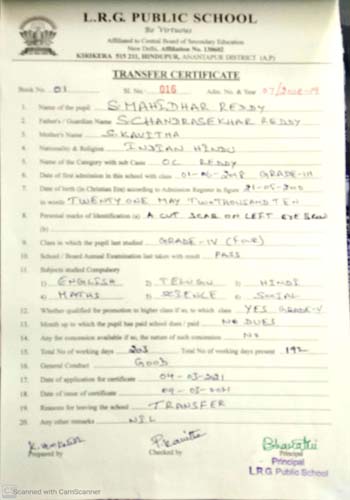 L.R.G. PUBLIC SCHOOL
Be Virtuous
Affiliated to Central Board of Secondary Education
New Delhi, Affiliation No. 130602
KIRIKERA 515 211, HINDUPUR, ANANTAPUR DISTRICT (A.P)
TRANSFER CERTIFICATE
Book No. 01 Sl. No. 016 Adm. No. & Year
1. Name of the pupil S. MAHIDHAR REDDY
2. Father's / Guardian Name S. CHANDRASEKHAR REDDY
3. Mother's Name S. KAVITHA
4. Nationality & Religion INDIAN HINDU
5. Name of the Category with sub Caste OC REDDY
6. Date of first admission in this school with class 01-06-2018 GRADE-III
7. Date of birth (in Christian Era) according to Admission Register in figure 21-05-2010
in words TWENTY ONE MAY TWO THOUSAND TEN
8. Personal marks of Identification (a) A CUT SCAR ON LEFT EYE BROW
(b)
9. Class in which the pupil last studied GRADE-IV (FOUR)
10. School / Board Annual Examination last taken with result PASS
11. Subjects studied Compulsory
1) ENGLISH 2) TELUGU 3) HINDI
4) MATHS 5) SCIENCE 6) SOCIAL
12. Whether qualified for promotion to higher class if so, to which class YES GRADE-V
13. Month up to which the pupil has paid school dues / paid NO DUES
14. Any fee concession availed if so, the nature of such concession NO
15. Total No of working days 203 Total No of working days present 192
16. General Conduct GOOD
17. Date of application for certificate 04-03-2021
18. Date of issue of certificate 04-03-2021
19. Reasons for leaving the school TRANSFER
20. Any other remarks NIL
Prepared by Checked by Principal
Principal
L.R.G. Public School
Scanned with CamScanner